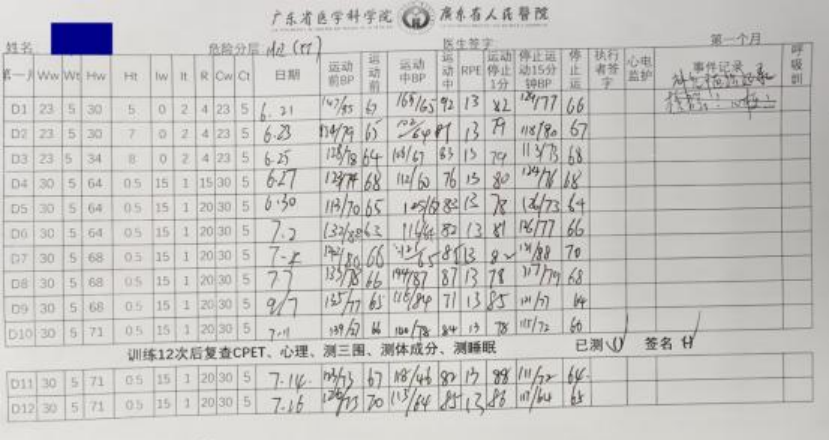 广东省医学科学院 廣东省人民醫院
姓名 危险分层: 医生签字: 第一个月
第一月 Ww Wt Hw Ht Iw It R Cw Ct 日期 运动前BP 运动前 运动中BP 运动中 RPE 运动停止1分 停止运动15分钟BP 停止运 执行者签字 心电监护 事件记录 呼吸训
D1 23 5 30 5 0 2 4 23 5 6.21 67 165/65 92 13 82 129/77 66
D2 23 5 30 7 0 2 4 23 5 6.23 124/79 65 13 79 118/80 67
D3 23 5 34 8 0 2 4 23 5 6.25 128/78 64 108/67 83 13 79 113/73 68
D4 30 5 64 0.5 15 1 15 30 5 6.27 123/74 68 112/60 76 13 80 124/76 68
D5 30 5 64 0.5 15 1 20 30 5 6.30 113/70 65 82 13 78 126/73 64
D6 30 5 64 0.5 15 1 20 30 5 7.2 63 82 13 81 126/77 66
D7 30 5 68 0.5 15 1 20 30 5 66 13 121/88 70
D8 30 5 68 0.5 15 1 20 30 5 7.7 133/78 66 144/87 87 13 78 117/79 68
D9 30 5 68 0.5 15 1 20 30 5 9/7 135/77 65 116/84 71 13 85 121/77 64
D10 30 5 71 0.5 15 1 20 30 5 7.11 139/67 66 84 13 78 115/72 66
训练12次后复查CPET、心理、测三围、测体成分、测睡眠 已测 签名
D11 30 5 71 0.5 15 1 20 30 5 7.14 67 118/46 82 13 88 111/72 64
D12 30 5 71 0.5 15 1 20 30 5 7.16 70 113/64 85 13 86 117/64 65